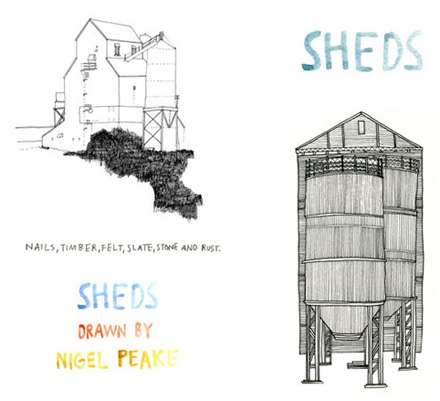 NAILS, TIMBER, FELT, SLATE, STONE AND RUST.
SHEDS
DRAWN BY
NIGEL PEAKE
SHEDS